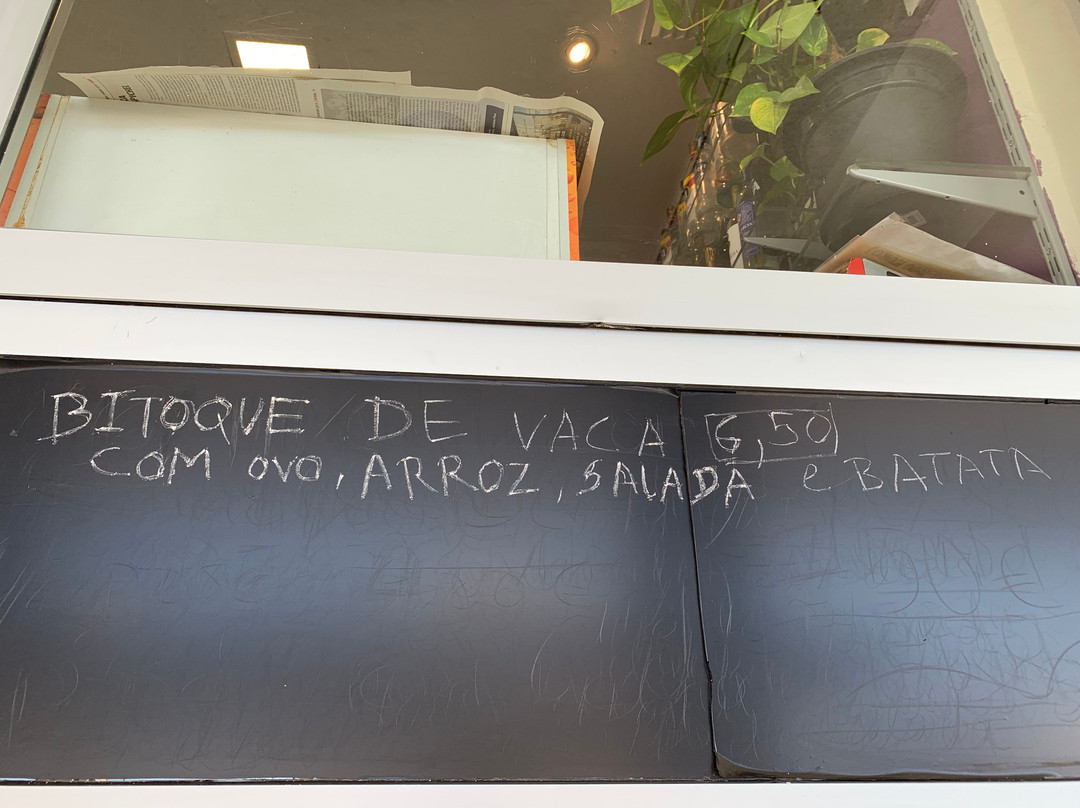 BITOQUE DE VACA 6,50
COM OVO, ARROZ, SALADA e BATATA